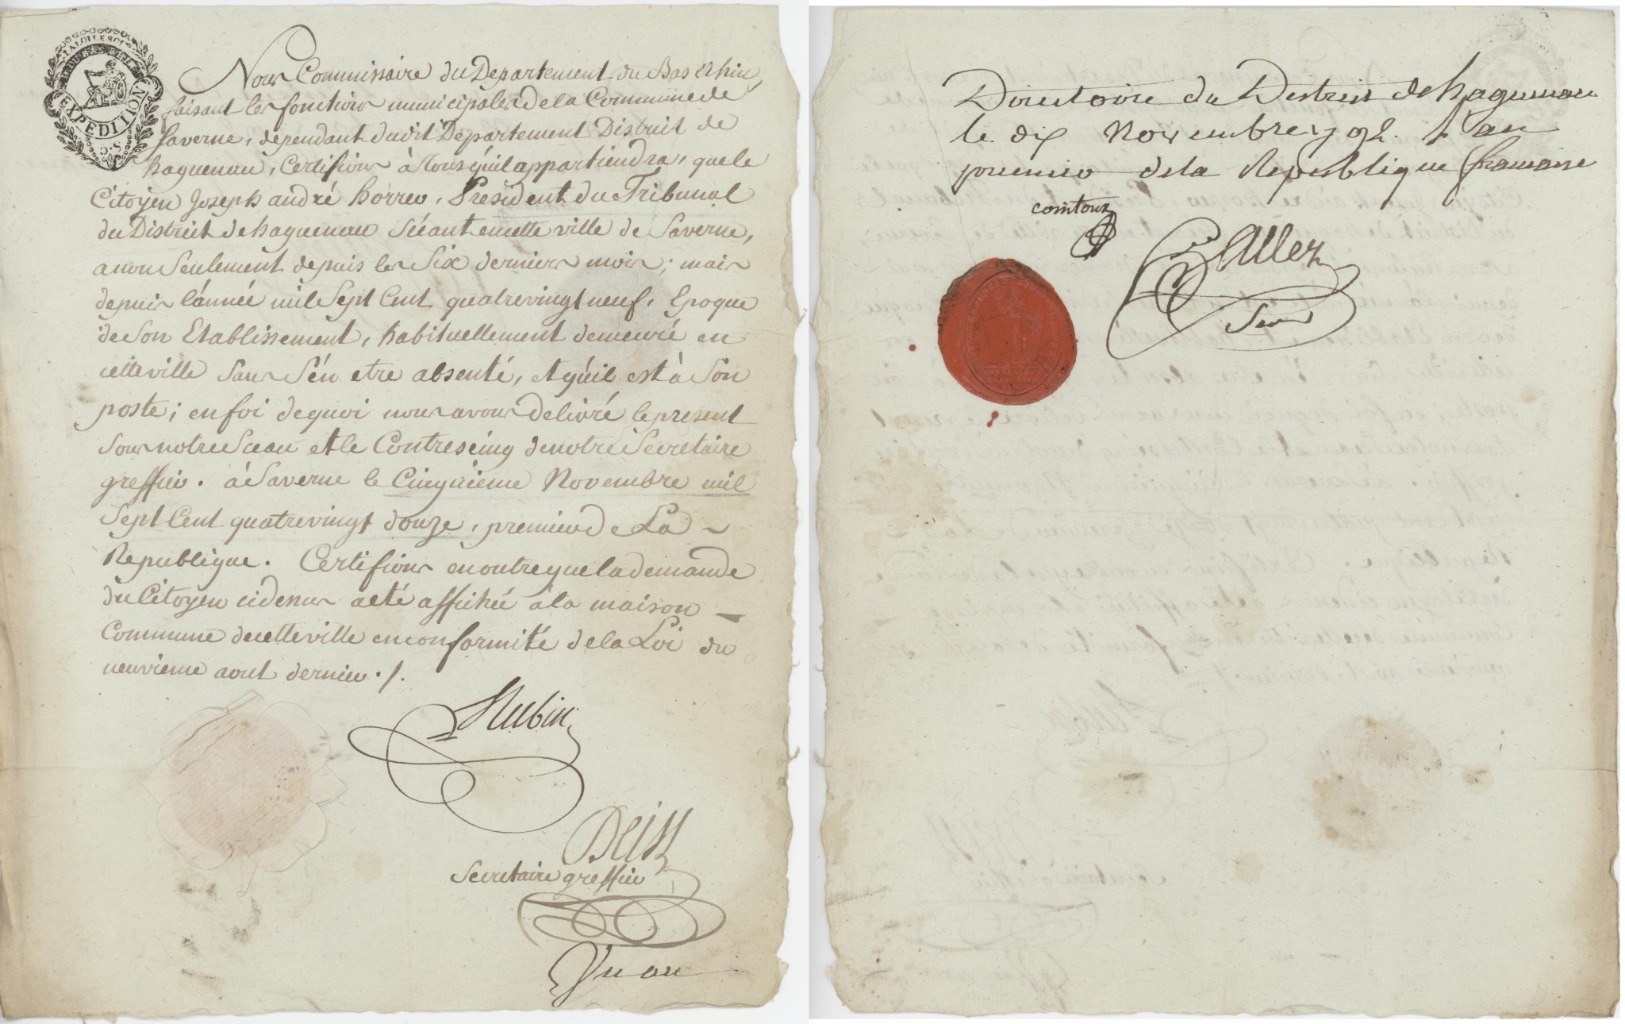 LA LOI LE ROI
EXPEDITION
5. S.
Nous Commissaire du Departement du Bas Rhin,
faisant les fonctions municipales de la Commune de
Saverne, dependant dudit Departement District de
haguenau, Certifions à tous qu'il appartiendra, que le
Citoyen Joseph andré horrer, President du Tribunal
du District de haguenau Séant en cette ville de Saverne,
a non Seulement depuis les Six derniers mois; mais
depuis l'année mil Sept Cent quatrevingt neuf, Epoque
de Son Etablissement, habituellement demeuré en
cette ville Sans S'én etre absenté, et qu'il est à Son
poste; en foi de quoi nous avons delivré le present
Sous notre Sceau et le Contreseing de notre Secretaire
greffier. à Saverne le Cinquième Novembre mil
Sept Cent quatrevingt douze, premier de La
Republique. Certifions en outre que la demande
du Citoyen cidessus a eté affichée à la maison
Commune de cette ville en conformité de la Loi du
neuvieme aout dernier ./.
Secretaire greffier
Directoire du District de haguenau
le dix Novembre 1792. l'an
premier de la Republique francaise